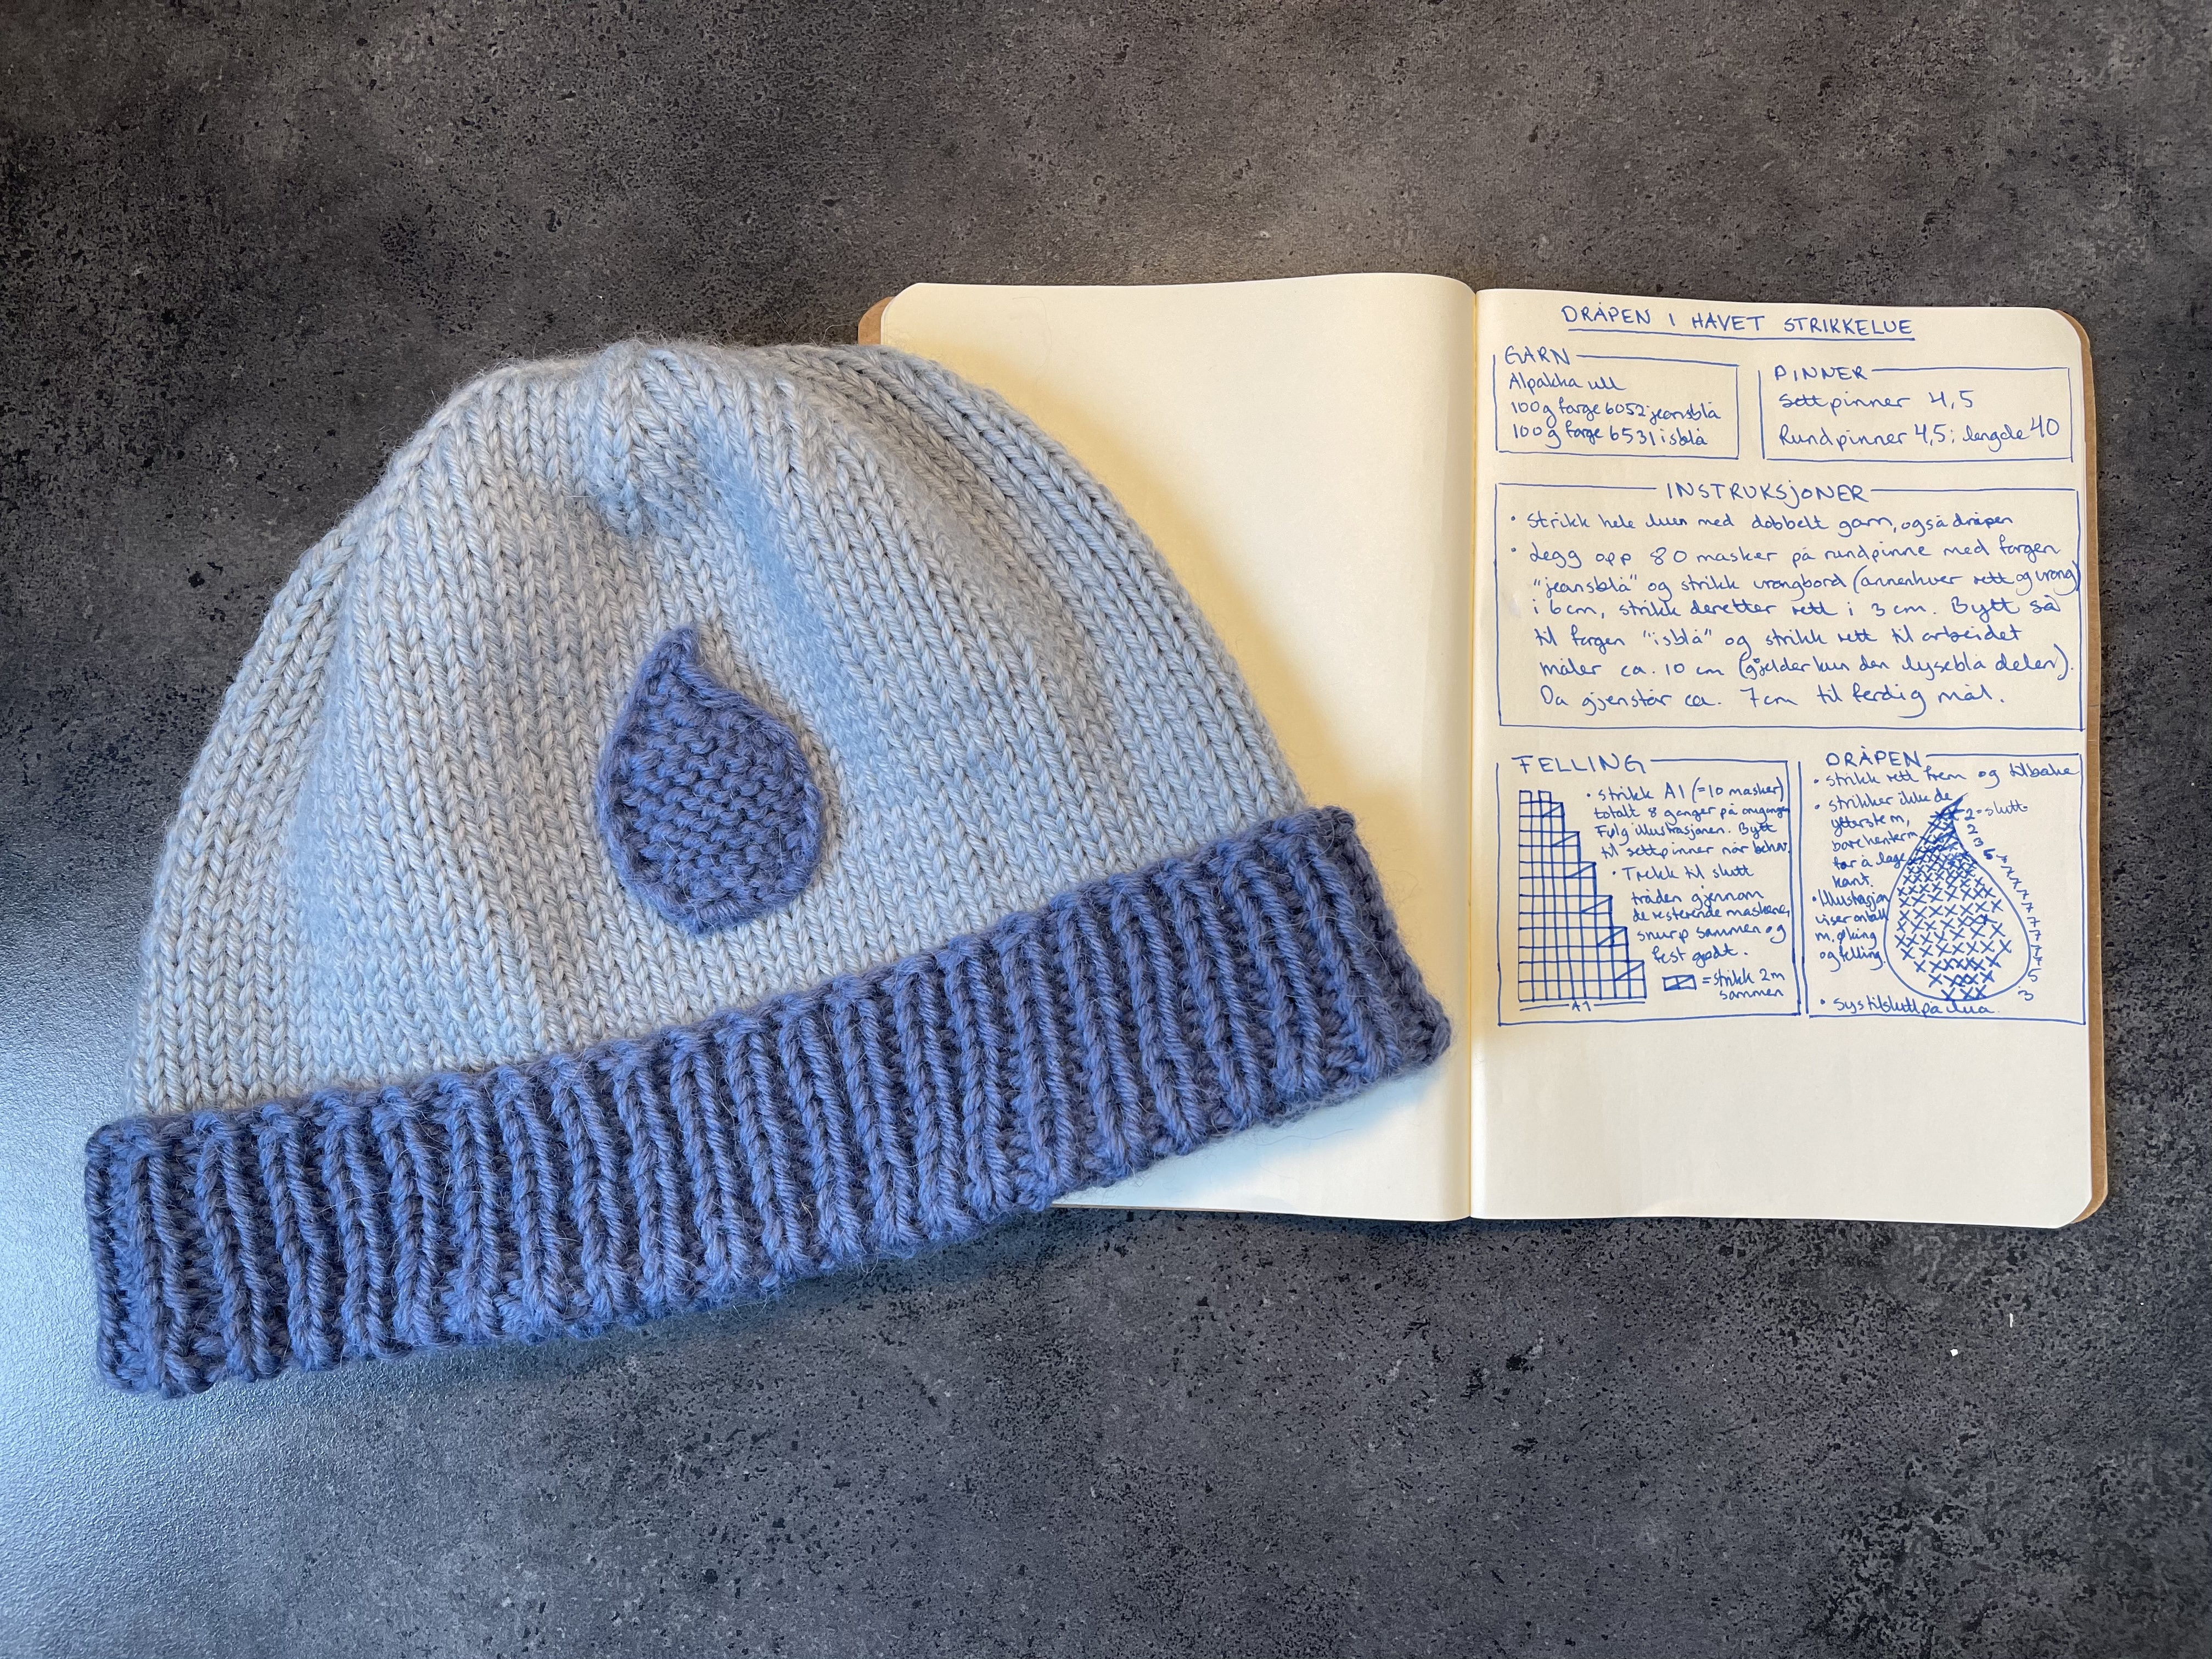 DRÅPEN I HAVET STRIKKELUE
GARN
Alpakka ull
100g farge 6052 jeansblå
100g farge 6531 isblå
PINNER
Settpinner 4,5
Rundpinner 4,5; lengde 40
INSTRUKSJONER
• Strikk hele luen med dobbelt garn, også dråpen
• Legg opp 80 masker på rundpinne med fargen
"jeansblå" og strikk vrangbord (annenhver rett og vrang)
i 6cm, strikk deretter rett i 3 cm. Bytt så
til fargen "isblå" og strikk rett til arbeidet
måler ca. 10 cm (gjelder kun den lyseblå delen).
Da gjenstår ca. 7cm til ferdig mål.
FELLING
• Strikk A1 (=10 masker)
totalt 8 ganger på omgangen
Følg illustrasjonen. Bytt
til settpinner når behov.
• Trekk til slutt
tråden gjennom
de resterende maskene,
snurp sammen og
fest godt.
= strikk 2m
sammen
A1
DRÅPEN
• Strikk rett frem og tilbake
• Strikker ikke de
ytterste m,
bare henter m
for å lage
kant.
• Illustrasjon
viser antall
m, øking
og felling.
2 = slutt
2
3
5
7
7
7
7
7
7
7
5
3
• Sys til slutt på lua.